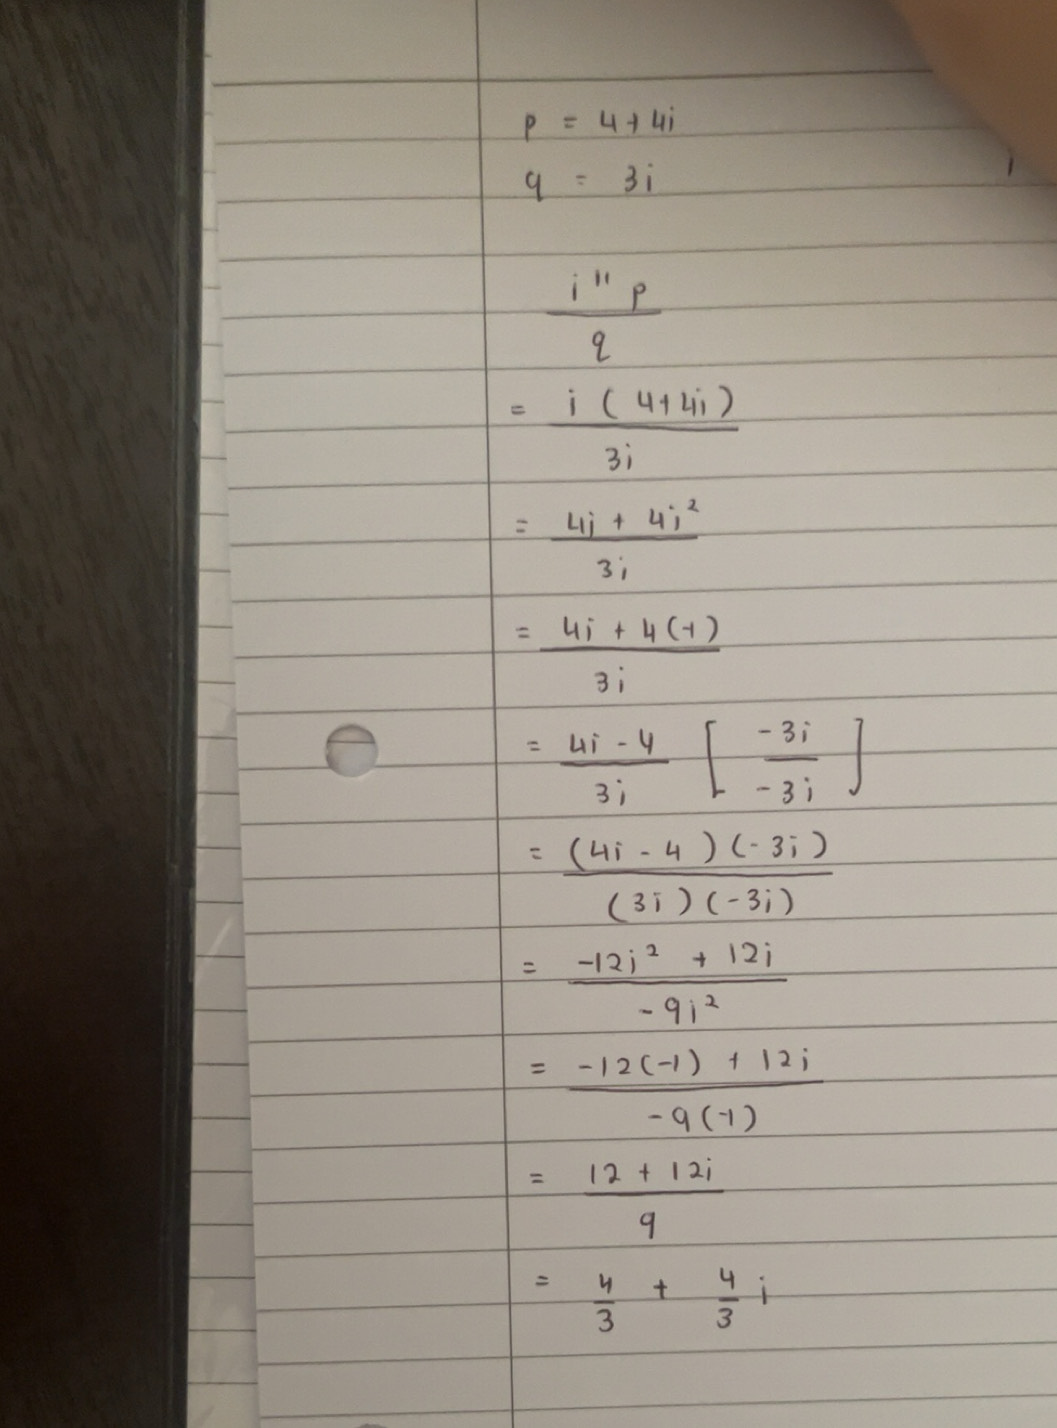 p = 4 + 4i
q = 3i
i¹¹ p
q
= i ( 4 + 4i )
3i
= 4i + 4i²
3i
= 4i + 4(-1)
3i
= 4i - 4 [ -3i
3i -3i ]
= (4i - 4)(-3i)
(3i)(-3i)
= -12i² + 12i
-9i²
= -12(-1) + 12i
-9(-1)
= 12 + 12i
9
= 4/3 + 4/3 i